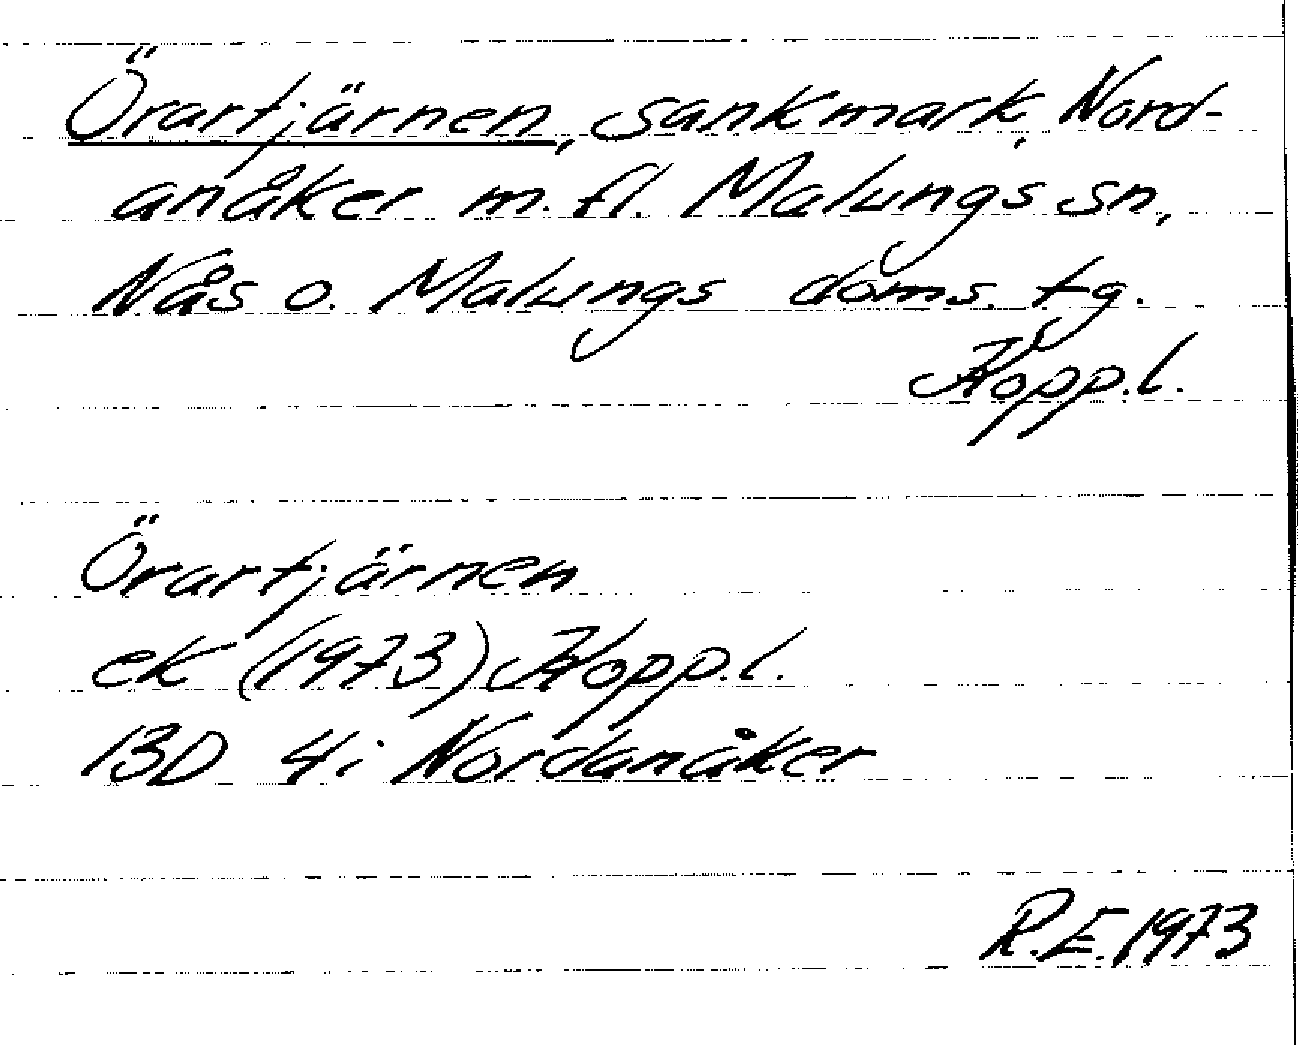 Örartjärnen, sankmark, Nord-
anåker m. fl. Malungs sn,
Nås o. Malungs doms. tg.
Kopp.l.
Örartjärnen
ek (1973) Kopp.l.
13D 4i Nordanåker
R.E. 1973